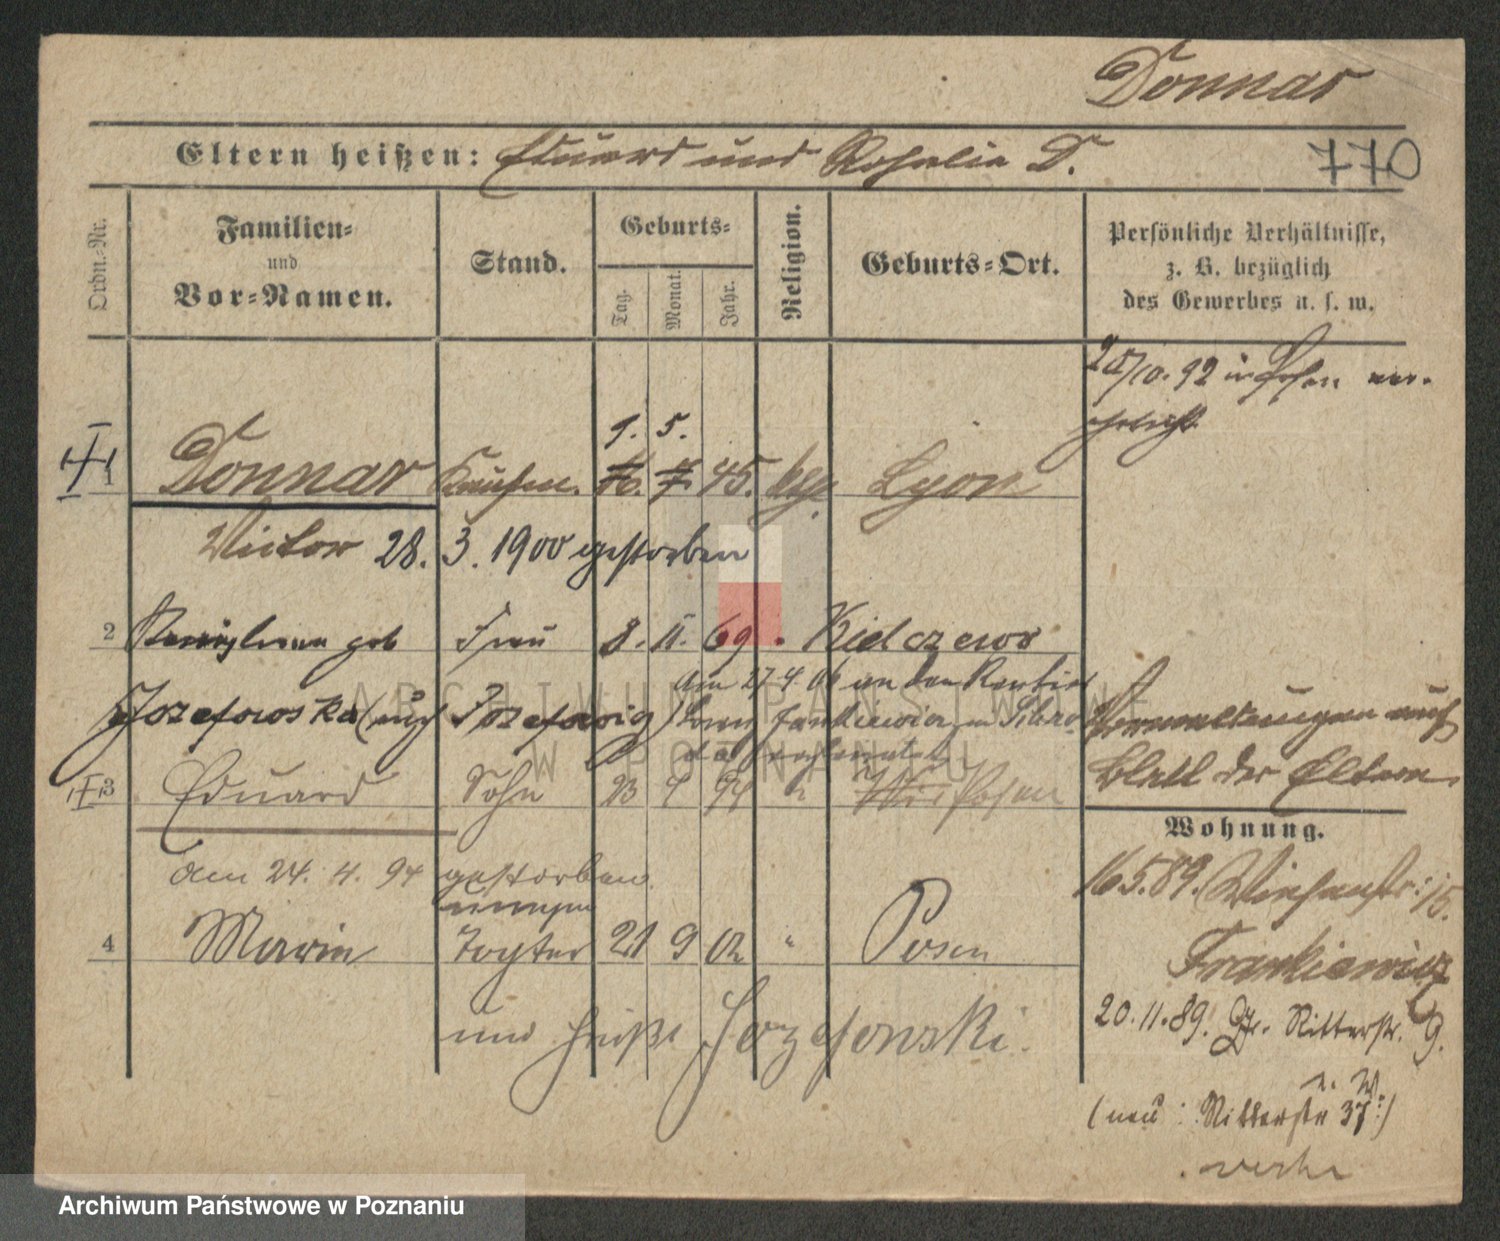 Donnar
Eltern heißen: Eduard und Rosalie D.
770
Ordn.-Nr.
Familien-
und
Vor-Namen.
Stand.
Geburts-
Tag.
Monat.
Jahr.
Religion.
Geburts-Ort.
Persönliche Verhältnisse,
z. B. bezüglich
des Gewerbes u. s. w.
20/10. 92 in Posen ver-
ehelicht
9. 5.
1 Donnar Kaufm. 16. 7. 45. Lyon
Victor 28. 3. 1900 gestorben
2 geb Frau 8. 11. 69 Kielczewo
am 27 4 06 an den Rentier
Jozefowska (auch Jozefowig) Frankiewicz in
verheiratet
Bemerkungen auch
Blatt der Eltern
3 Eduard Sohn 23 4 94 " Posen
Wohnung.
am 24. 4. 94 gestorben.
16.5.89. Wiesenstr: 15.
unehel
4 Maria Tochter 21 9 02 " Posen
Frankiewicz
und heißt Jozefowski.
20.11.89. Gr. Ritterstr. 9.
n. W.
(neu: Ritterstr 37:)
verte
ARCHIWUM PAŃSTWOWE
W POZNANIU
Archiwum Państwowe w Poznaniu